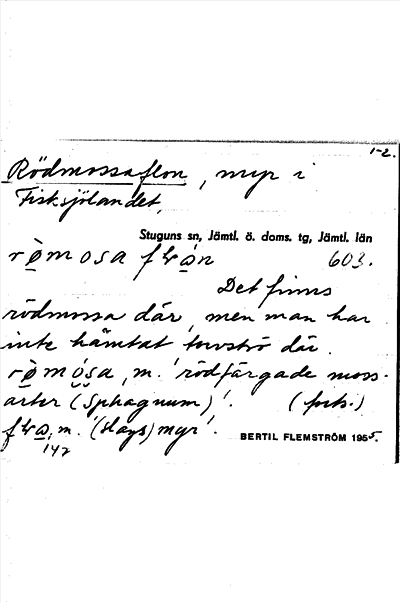 1-2.
Rödmossaflon, myr i
Fisksjölandet,
Stuguns sn, Jämtl. ö. doms. tg, Jämtl. län
603.
Det finns
rödmossa där, men man har
inte hämtat torvströ där.
m. 'rödfärgade moss-
arter (Sphagnum)'. (forts.)
m. '(slags) myr'.
BERTIL FLEMSTRÖM 1955.
142